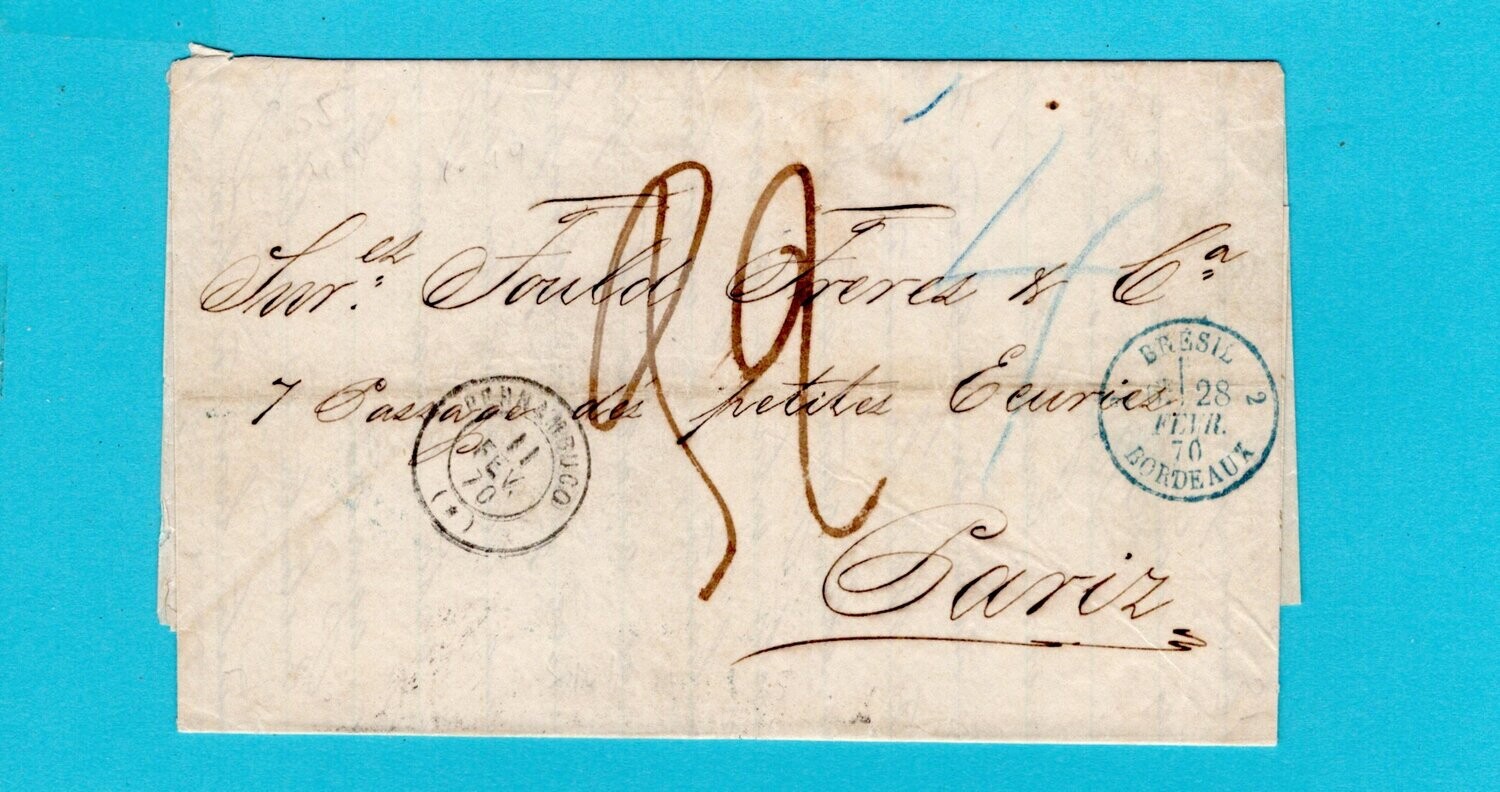 Snr.es Fould Freres & Ca
7 Passage des petites Ecuries
Pariz
PERNAMBUCO
11
FEV.
70
BRÉSIL
2
28
FEVR.
70
BORDEAUX
4